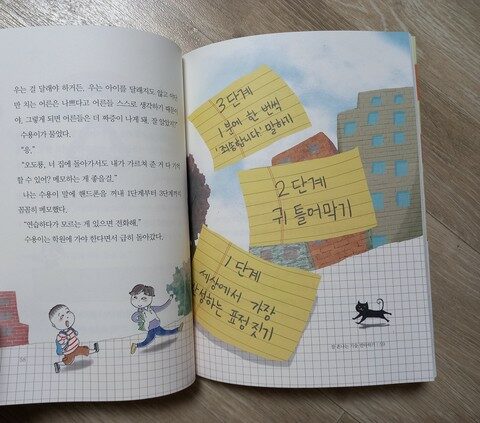 우는 걸 달래야 하거든, 우는 아이를 달래지도 않고 야단
만 치는 어른은 나쁘다고 어른들 스스로 생각하기 때문이
야. 그렇게 되면 어른들은 더 짜증이 나게 돼. 잘 알았지?"
수용이가 물었다.
"응."
"오도룡, 너 집에 돌아가서도 내가 가르쳐 준 거 다 기억
할 수 있어? 메모하는 게 좋을걸."
나는 수용이 말에 핸드폰을 꺼내 1단계부터 3단계까지
꼼꼼히 메모했다.
"연습하다가 모르는 게 있으면 전화해."
수용이는 학원에 가야 한다면서 급히 돌아갔다.
58
3단계
1분에 한 번씩
'죄송합니다' 말하기
2단계
귀 틀어막기
1단계
세상에서 가장
반성하는 표정 짓기
잘 혼나는 기술
59